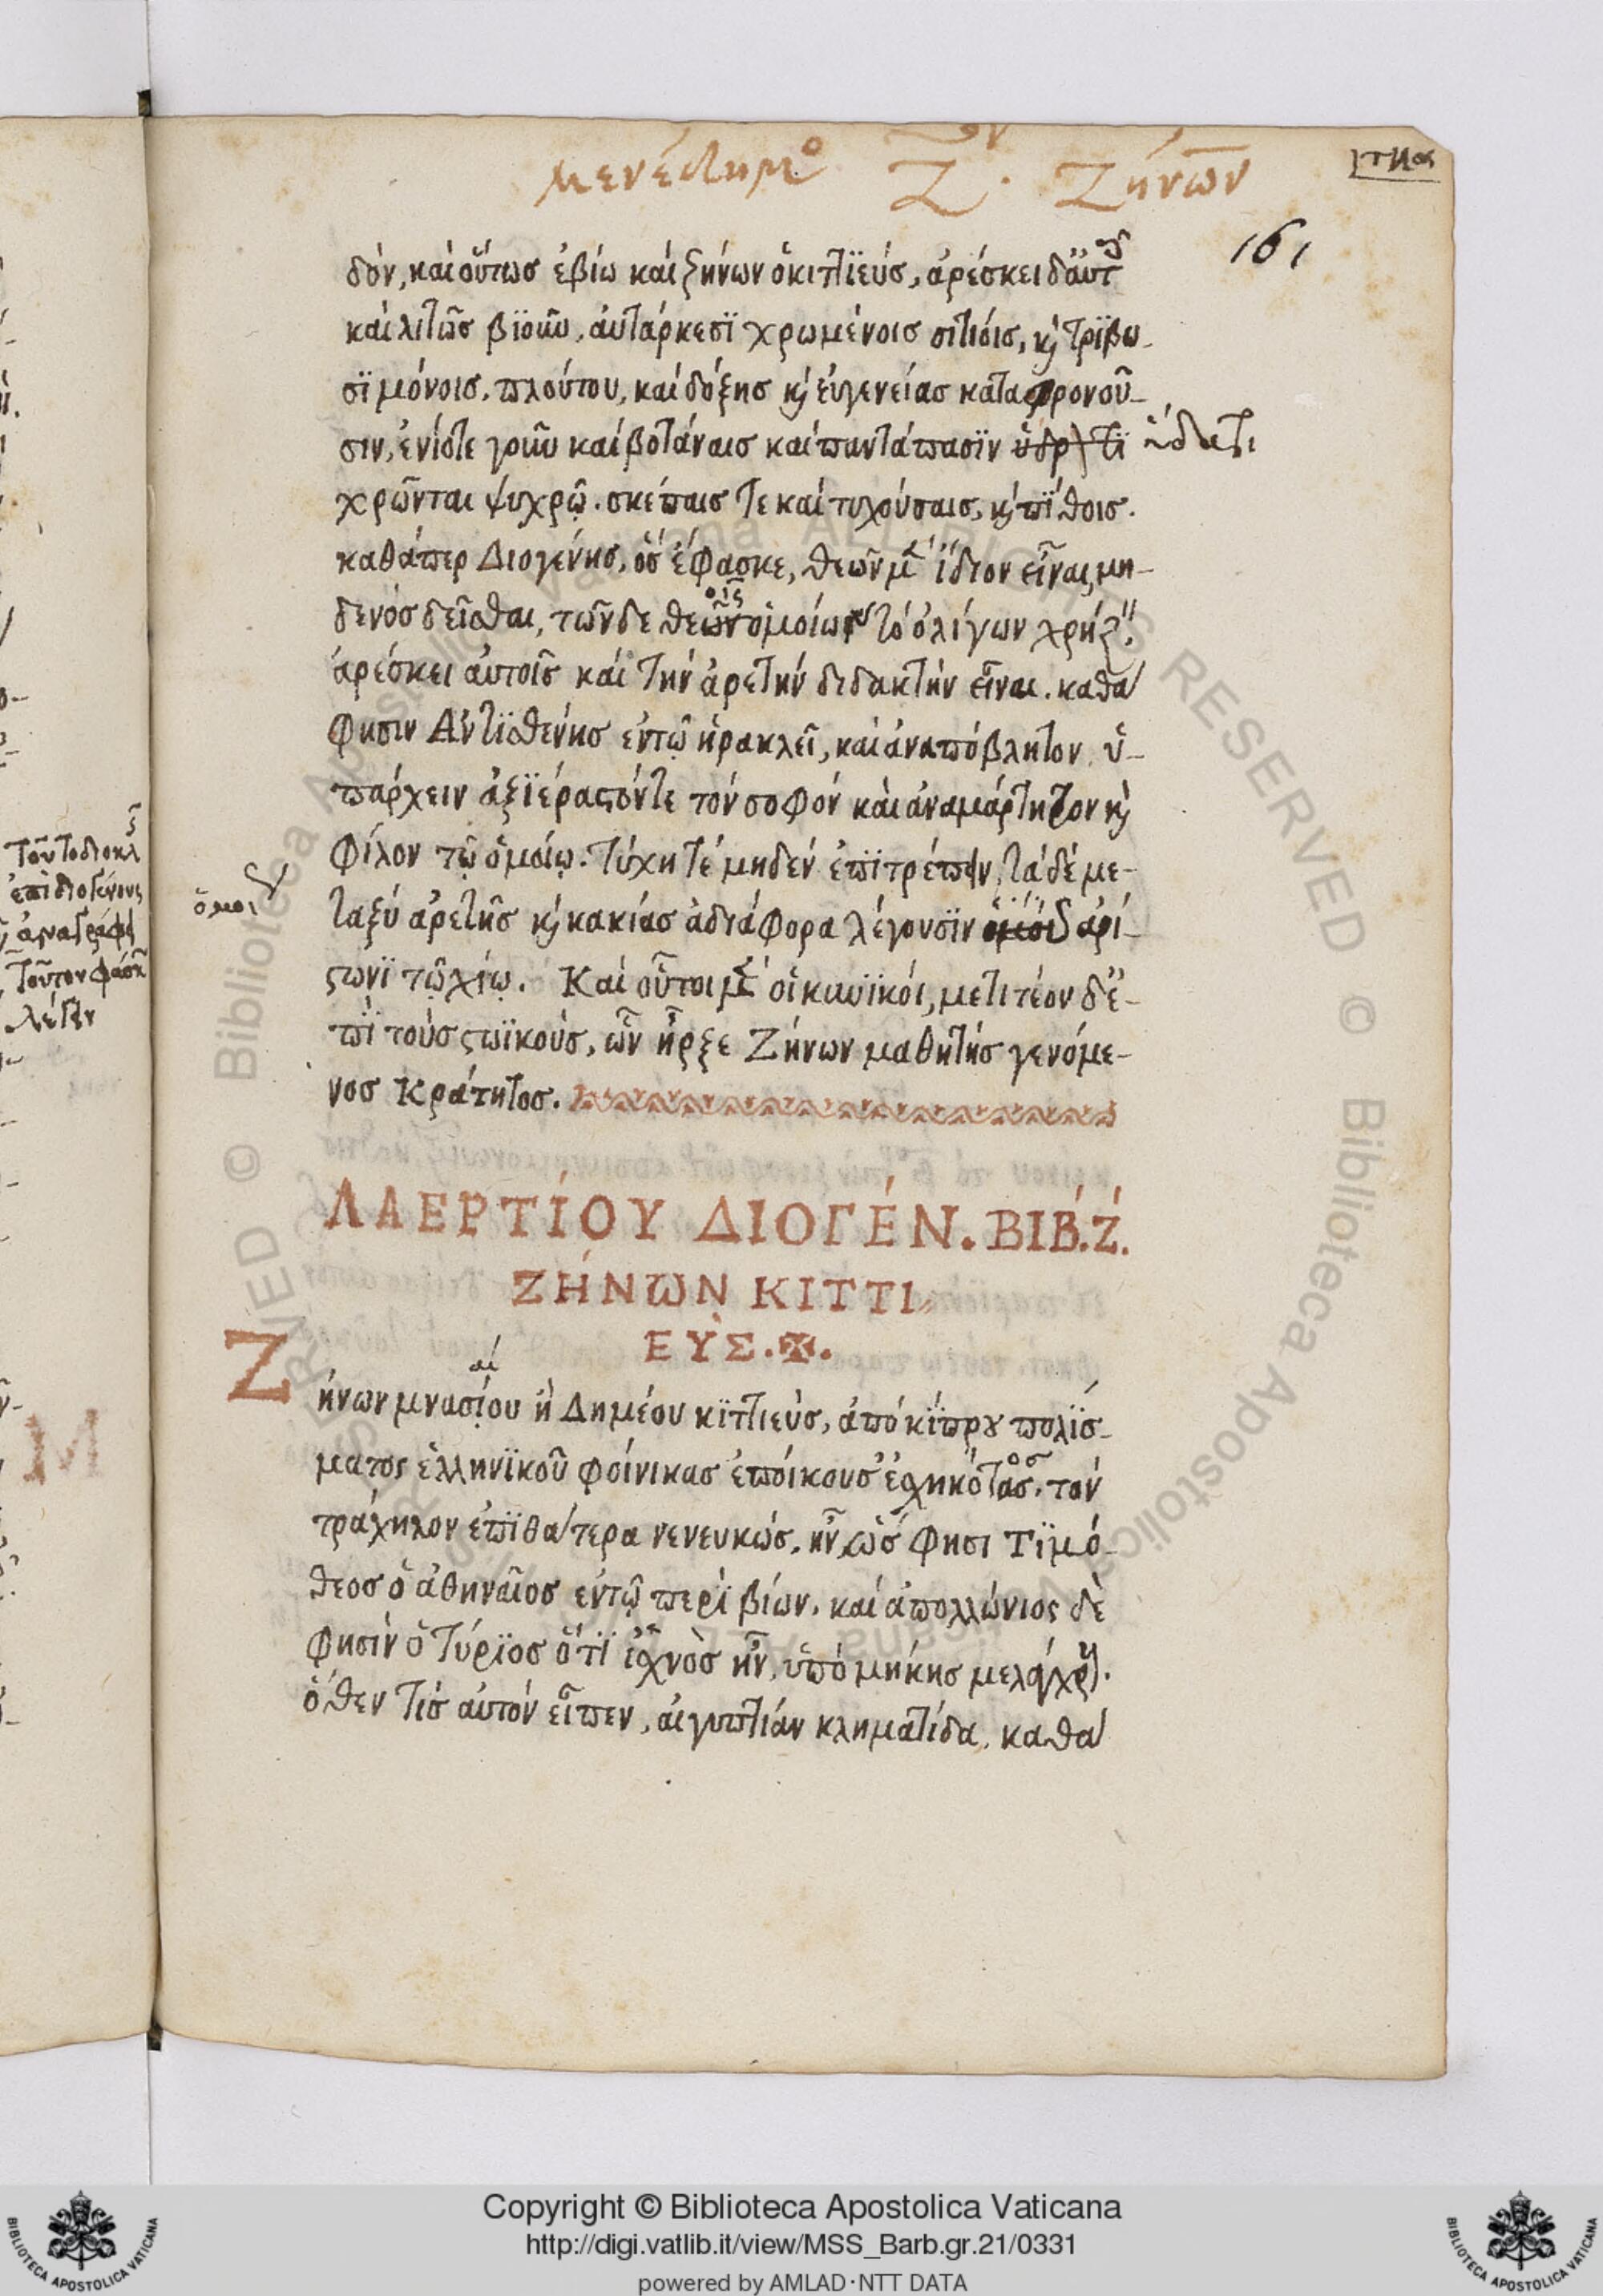 μενέδημο Ζον · Ζήνων
161
δόν, καὶ οὕτως ἐβίω καὶ ζήνων ὁ κιτϊεύς, ἀρέσκει δ' αὐτοῖς
καὶ λιτῶς βϊοῦν, αὐτάρκεσϊ χρωμένοις σιτίοις, κ τρϊβω-
σϊ μόνοις, πλούτου, καὶ δόξης κ εὐγενείας καταφρονοῦ-
σιν, ἐνίοτε γοῦν καὶ βοτάναις καὶ παντάπασϊν ὕδατι
χρῶνται ψυχρῷ. σκέπαις τε καὶ τυχούσαις, κ πϊθοις.
καθάπερ Διογένης, ὅς ἔφασκε, θεῶν μὲν ἴδιον εἶναι, μη-
δενός δεῖσθαι, τῶν δε θεῶν οις ὁμοίων τό ὀλίγων χρήζειν
ἀρέσκει αὐτοῖς καὶ τήν ἀρετήν διδακτήν εἶναι. καθά
φησιν Ἀντϊσθένης ἐν τῷ ἡρακλεῖ, καὶ ἀναπόβλητον ὑ-
πάρχειν ἀξϊέραστόν τε τόν σοφόν καὶ ἀναμάρτητον κ
φίλον τῷ ὁμοίῳ. τύχη τέ μηδέν ἐπϊτρέπειν, τά δέ με-
όμοι
ταξύ ἀρετῆς κ κακίας ἀδιάφορα λέγουσϊν ἀρί-
στωνϊ τῷ χίῳ. Καὶ οὗτοι μὲν οἱ κυνϊκοί, μετιτέον δ' ἐ-
πϊ τούς στωϊκούς, ὧν ἦρξε Ζήνων μαθητής γενόμε-
νος Κράτητος.
ΛΑΕΡΤΊΟΥ ΔΙΟΓΈΝ. ΒΙΒ. Ζ.
ΖΉΝΩΝ ΚΙΤΤΙ
ΕΥΣ.
Ζήνων μνασίου ἢ Δημέου κϊτιεύς, ἀπό κύπρου πολϊσ-
ματος ἑλληνϊκοῦ φοίνικας ἐποίκους ἐσχηκότος. τόν
τράχηλον ἐπϊ θάτερα νενευκώς, ἦν ὥς φησι Τϊμό-
θεος ὁ ἀθηναῖος ἐν τῷ περὶ βίων, καὶ ἀπολλώνιος δὲ
φησὶν ὁ τύρϊος ὅτϊ ἰσχνὸς ἦν, ὑπομήκης μελάγχρους.
ὅθεν τίς αὐτόν εἶπεν, αἰγυπτίαν κληματίδα. καθά
τοῦτο διοκλῆς
ἐπὶ διογένους
ἀναγράφει
τοῦτον φάσκ
λέγειν
Μ
Copyright © Biblioteca Apostolica Vaticana
http://digi.vatlib.it/view/MSS_Barb.gr.21/0331
powered by AMLAD·NTT DATA